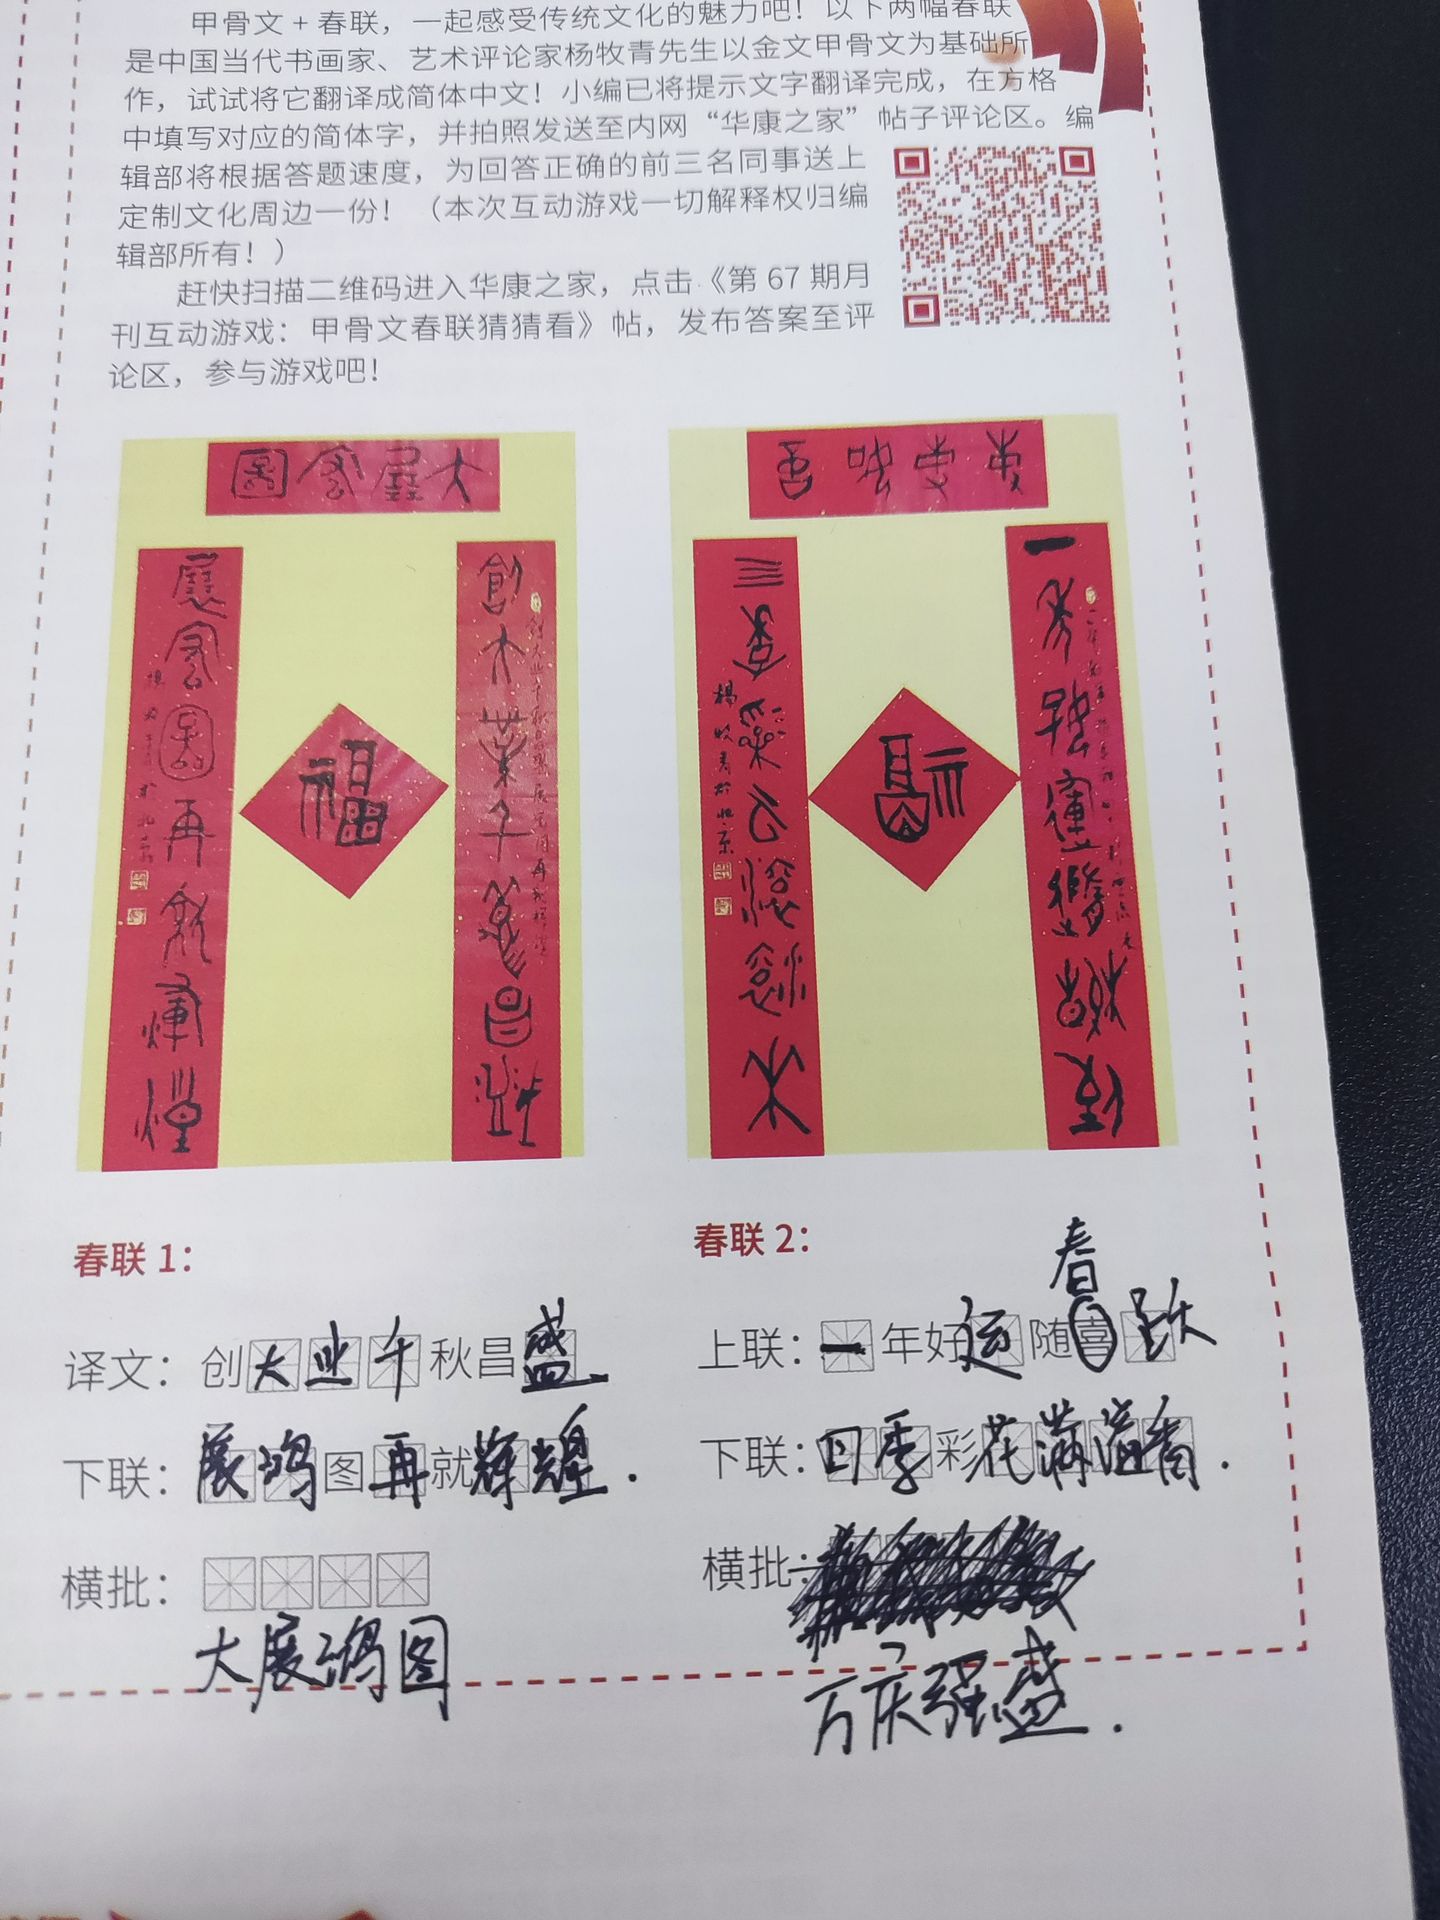 甲骨文 + 春联，一起感受传统文化的魅力吧！以下两幅春联
是中国当代书画家、艺术评论家杨牧青先生以金文甲骨文为基础所
作，试试将它翻译成简体中文！小编已将提示文字翻译完成，在方格
中填写对应的简体字，并拍照发送至内网“华康之家”帖子评论区。编
辑部将根据答题速度，为回答正确的前三名同事送上
定制文化周边一份！（本次互动游戏一切解释权归编
辑部所有！）
赶快扫描二维码进入华康之家，点击《第 67 期月
刊互动游戏：甲骨文春联猜猜看》帖，发布答案至评
论区，参与游戏吧！
大展宏圖
創大業千秋昌盛
展宏圖再就輝煌
福
福
春联 1：
译文：创大业千秋昌盛.
下联：展鸿图再就辉煌.
横批：
大展鸿图
春联 2：
春
上联：一年好运随喜跃
下联：四季彩花满溢香.
横批：
万庆强盛.